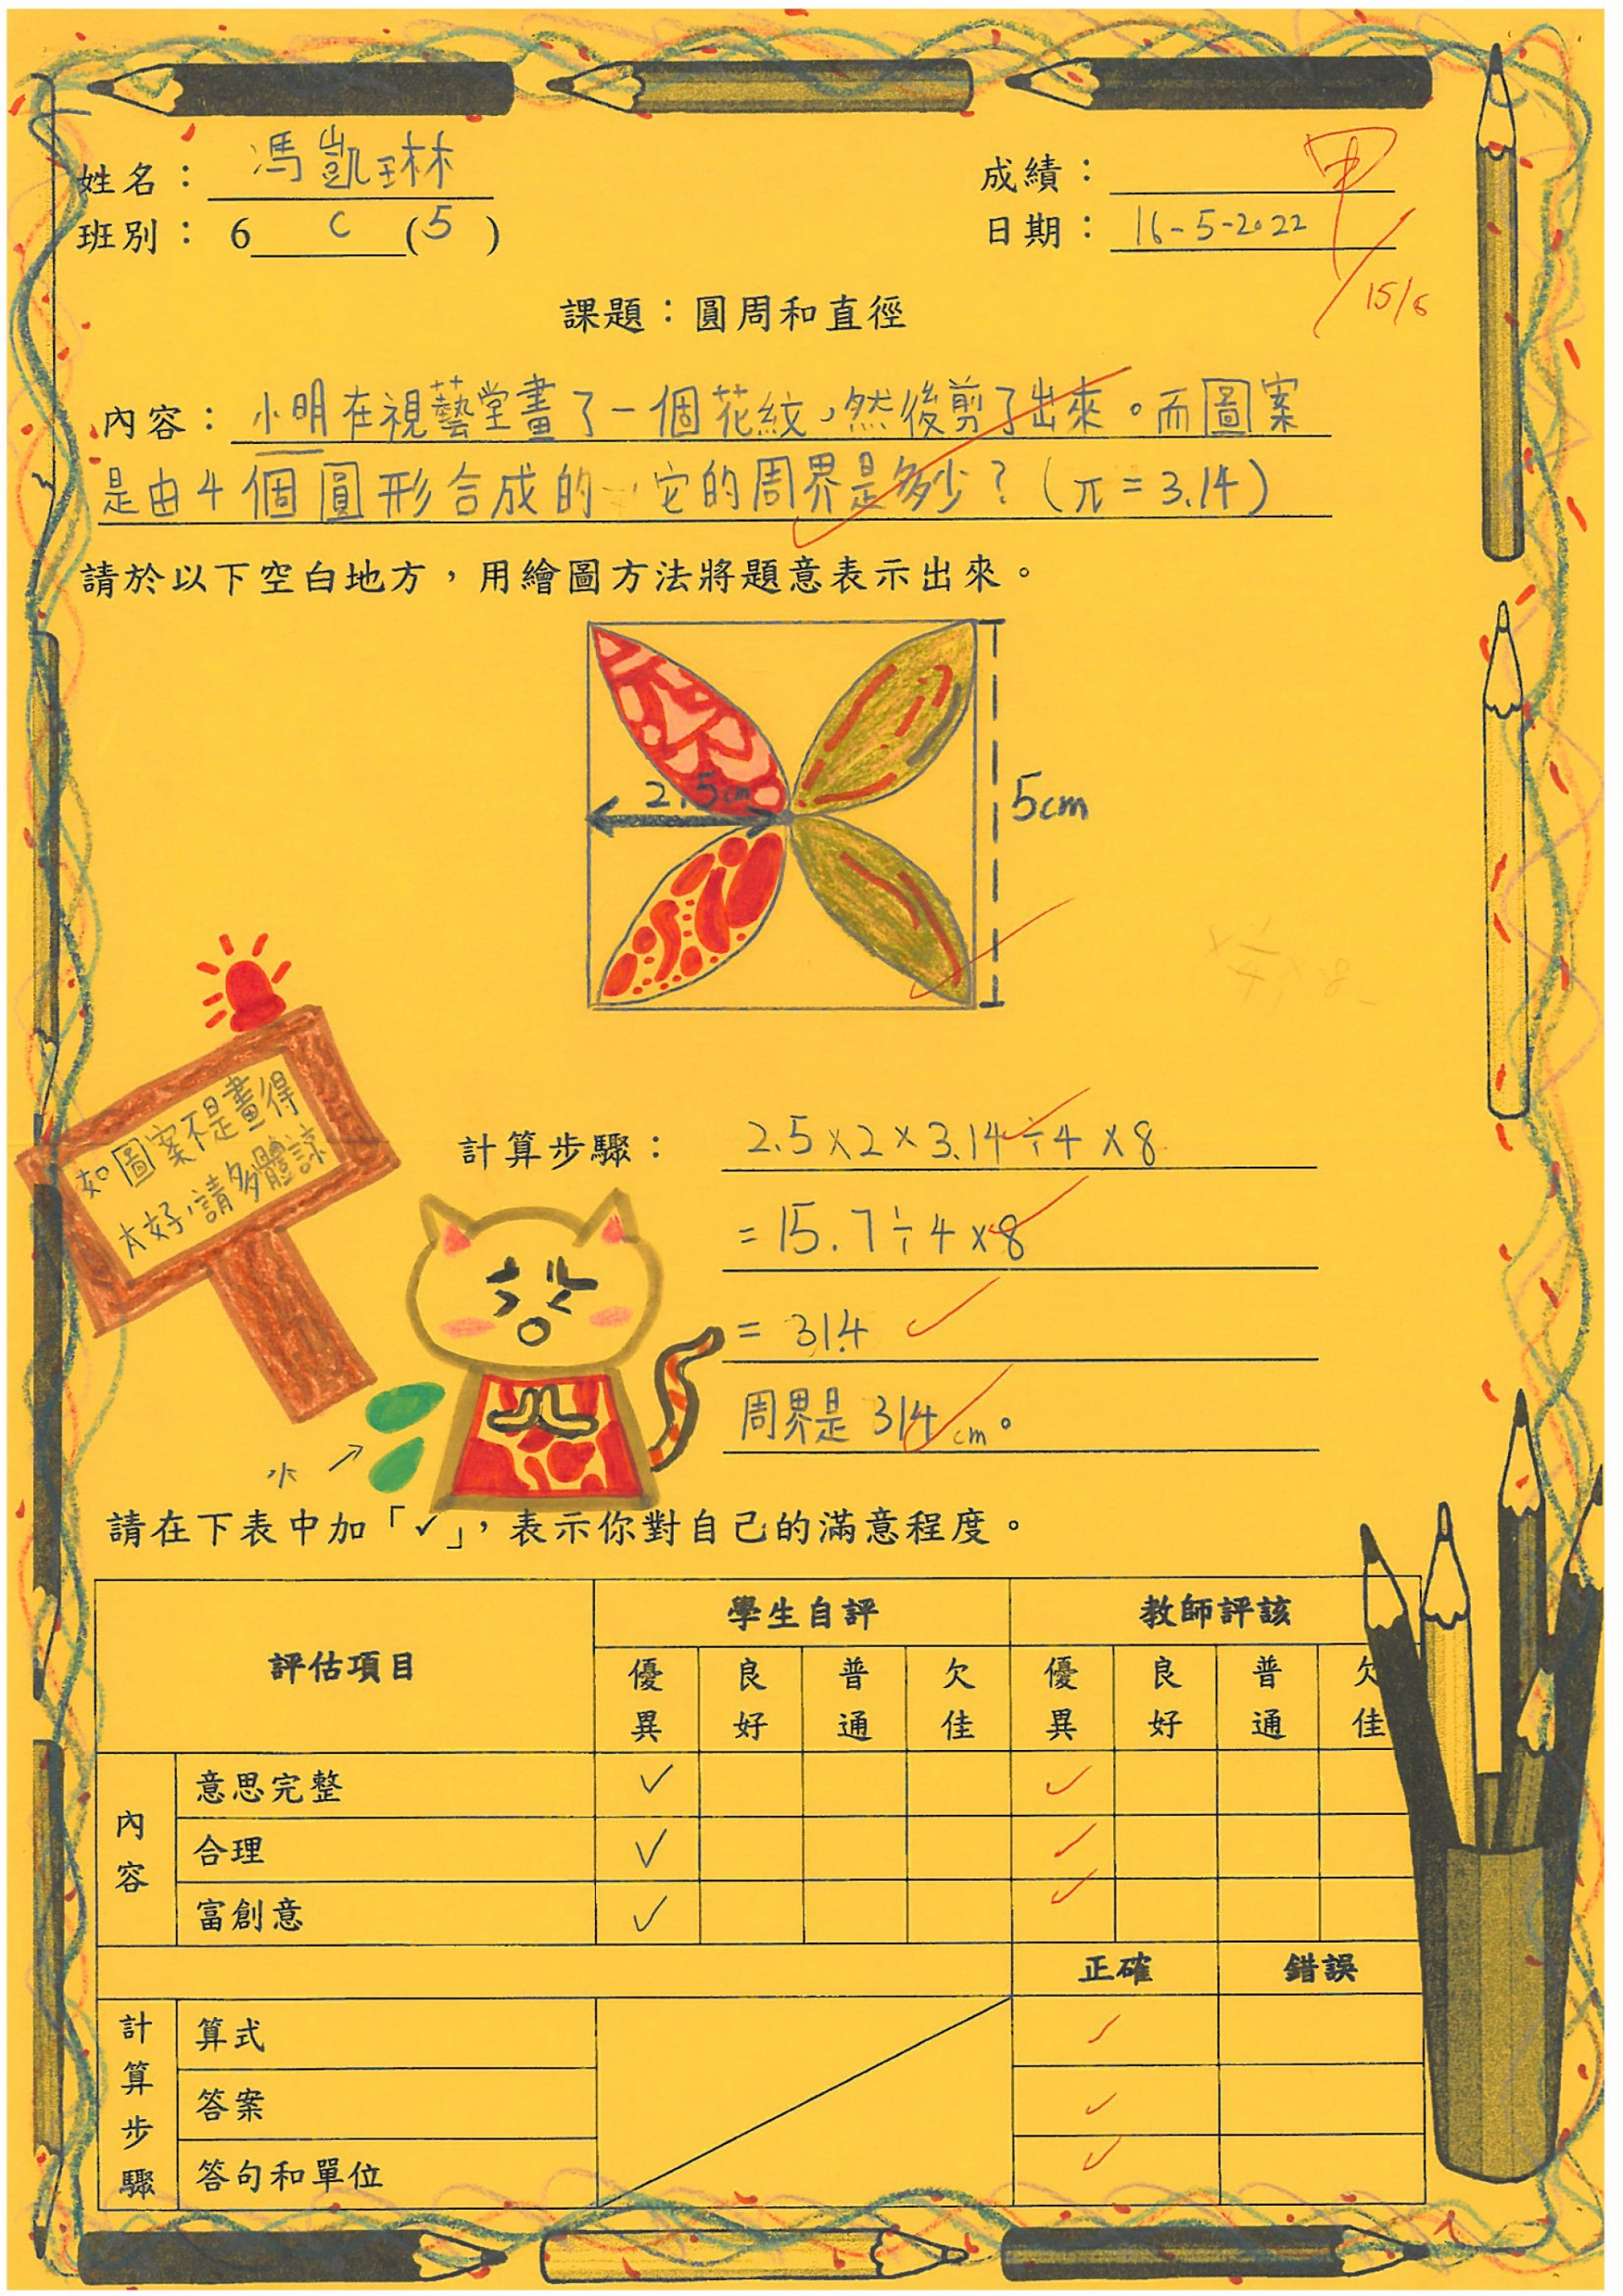 姓名： 馮凱琳
成績： 甲
班別： 6 C (5)
日期： 16-5-2022
15/6
課題：圓周和直徑
內容： 小明在視藝堂畫了一個花紋，然後剪了出來。而圖案
是由4個圓形合成的 它的周界是多少？(π=3.14)
請於以下空白地方，用繪圖方法將題意表示出來。
2.5cm
5cm
如圖案不是畫得
太好，請多體諒
計算步驟： 2.5×2×3.14÷4×8
=15.7÷4×8
= 31.4
周界是 31.4 cm。
水
請在下表中加「✓」，表示你對自己的滿意程度。
評估項目 學生自評 教師評該
優異 良好 普通 欠佳 優異 良好 普通 欠佳
內容
意思完整 ✓ ✓
合理 ✓ ✓
富創意 ✓ ✓
正確 錯誤
計算步驟
算式 ✓
答案 ✓
答句和單位 ✓